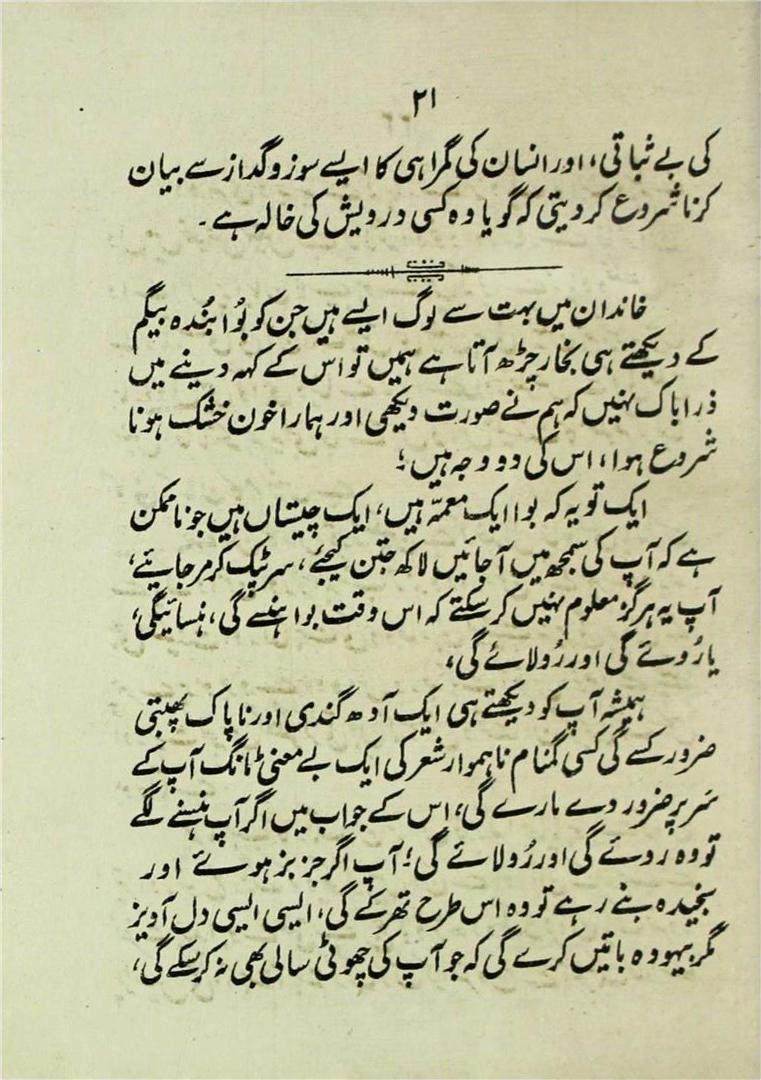 ۲۱
کی بے ثباتی، اور انسان کی گمراہی کا ایسے سوز و گداز سے بیان
کرنا شروع کر دیتی کہ گویا وہ کسی درویش کی خالہ ہے۔
خاندان میں بہت سے لوگ ایسے ہیں جن کو بُوا بُندہ بیگم
کے دیکھتے ہی بخار چڑھ آتا ہے ہمیں تو اس کے کہہ دینے میں
ذرا باک نہیں کہ ہم نے صورت دیکھی اور ہمارا خون خشک ہونا
شروع ہوا، اس کی دو وجہ ہیں؛
ایک تو یہ کہ بوا ایک معمّہ ہیں، ایک چیستاں ہیں جو ناممکن
ہے کہ آپ کی سمجھ میں آ جائیں لاکھ جتن کیجئے، سر ٹپک کر مر جایئے،
آپ یہ ہرگز معلوم نہیں کر سکتے کہ اس وقت بوا ہنسے گی، ہنسائیگی،
یا رُوئے گی اور رُولائے گی،
ہمیشہ آپ کو دیکھتے ہی ایک آدھ گندی اور ناپاک پھبتی
ضرور کسے گی کسی گمنام ناہموار شعر کی ایک بے معنی ٹانگ آپ کے
سَر پر ضرور دے مارے گی، اس کے جواب میں اگر آپ ہنسنے لگے
تو وہ روئے گی اور رُولائے گی؛ آپ اگر جز بز ہوئے اور
سنجیدہ بنے رہے تو وہ اس طرح تھرکے گی، ایسی ایسی دل آویز
مگر بیہودہ باتیں کرے گی کہ جو آپ کی چھوٹی سالی بھی نہ کر سکے گی،